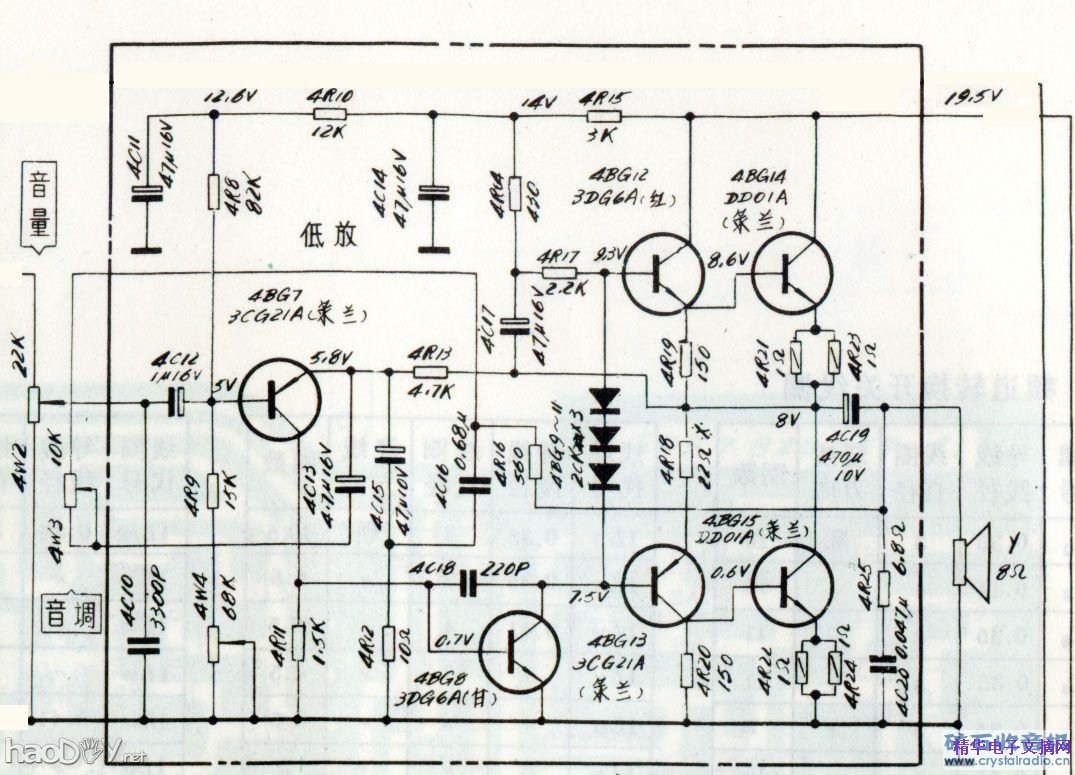 12.6V
4R10
12K
14V
4R15
3K
19.5V
4C11
47μ16V
4R8
82K
4C14
47μ16V
4R14
430
4BG12
3DG6A(红)
4BG14
DD01A
(荣兰)
音量
低放
4R17
2.2K
9.3V
8.6V
4BG7
3CG21A(荣兰)
4C17
47μ16V
22K
4C12
1μ16V
5V
5.8V
4R13
4.7K
4R19
150
4R21
1Ω
4R23
1Ω
8V
4C19
470μ
10V
4W2
4W3
4R9
15K
4C13
4.7μ16V
4C15
47μ10V
4C16
0.68μ
4R16
560
4BG9~11
4R18
22Ω*
4BG15
DD01A
(荣兰)
Y
8Ω
音调
4C10
3300P
4W4
68K
4R11
1.5K
4R12
10Ω
4C18
220P
0.7V
4BG8
3DG6A(甘)
7.5V
4BG13
3CG21A
(荣兰)
0.6V
4R20
150
4R22
1Ω
4R24
1Ω
4R25
6.8Ω
4C20
0.047μ
haoDIY.net
精华电子文摘网
www.crystalradio.cn